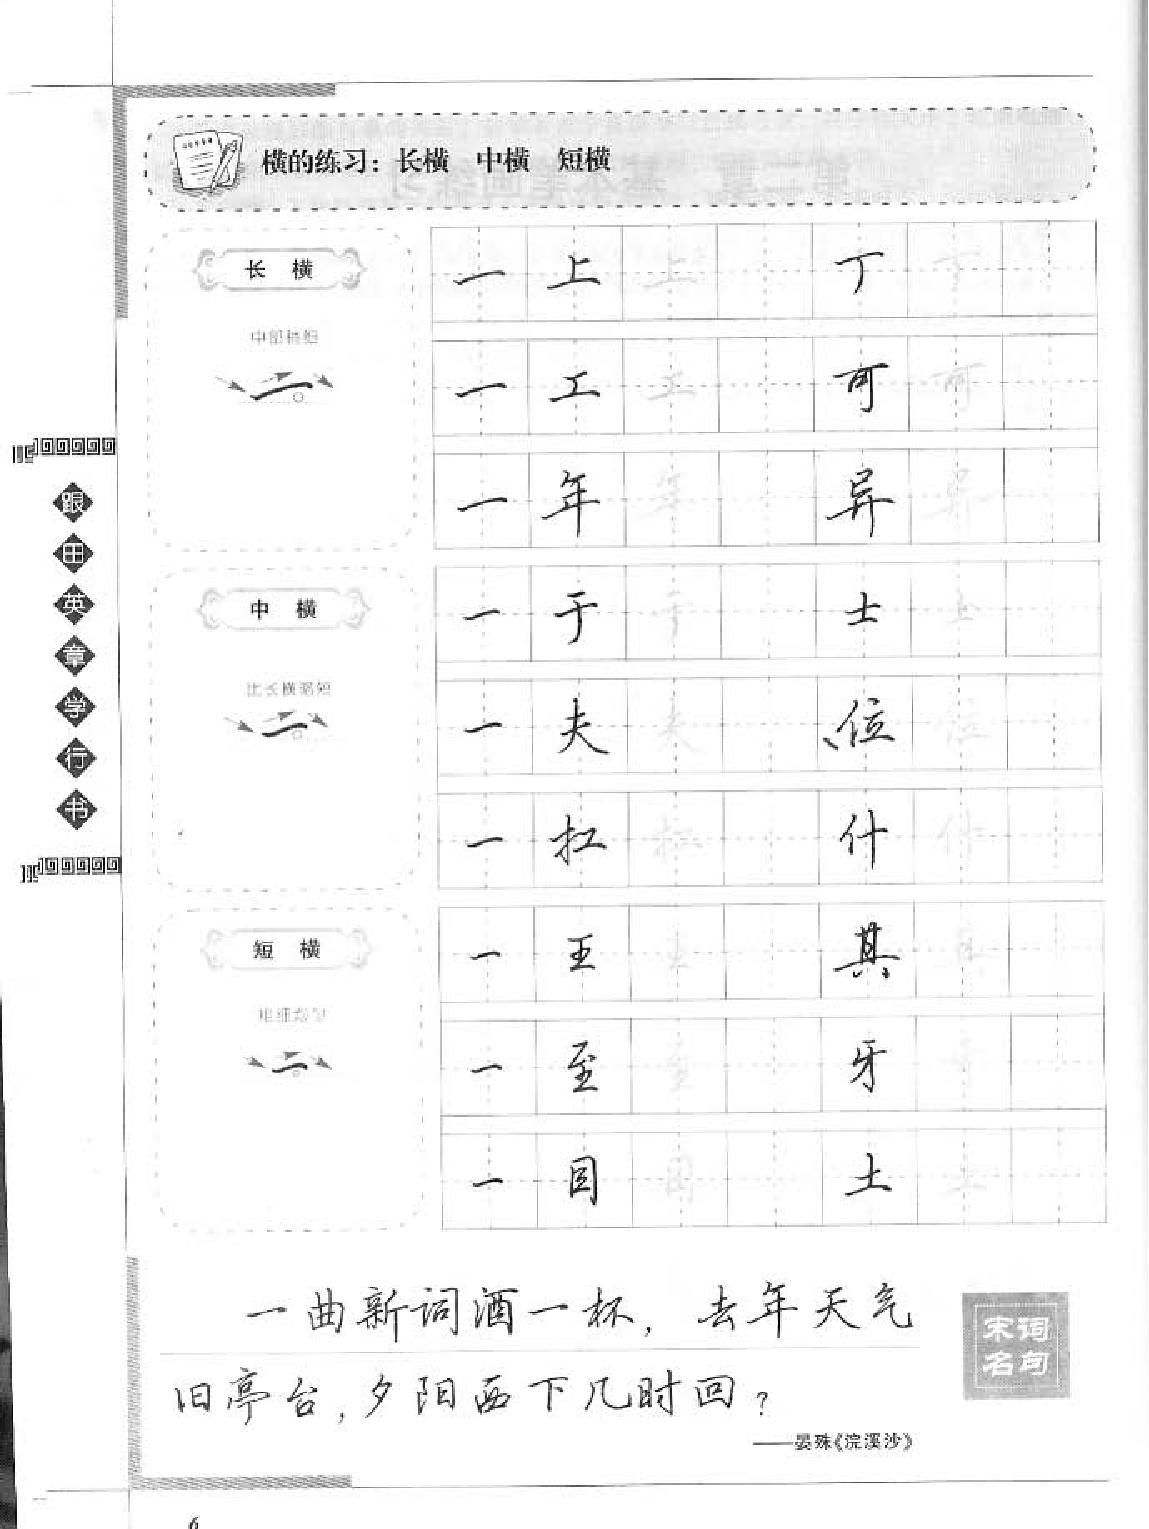 横的练习：长横 中横 短横
长横
一 上 上 丁 丁
一 工 工 可 可
一 年 年 异 异
中横
比长横略短
一 于 于 士 士
一 夫 夫 位 位
一 扛 扛 什 什
短横
一 王 王 其 其
一 至 至 牙 牙
一 目 目 土 土
跟田英章学行书
一曲新词酒一杯，去年天气
旧亭台，夕阳西下几时回？
——晏殊《浣溪沙》
宋词
名句
6